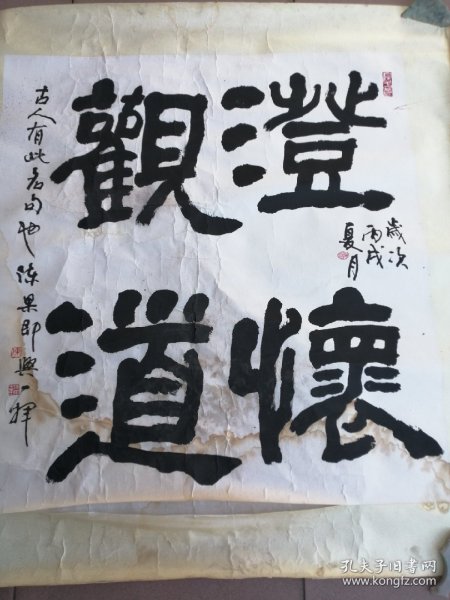 澄懷
觀道
歲次
丙戌
夏月
古人有此名句也 陳果即興一揮
孔夫子旧书网
www.kongfz.com